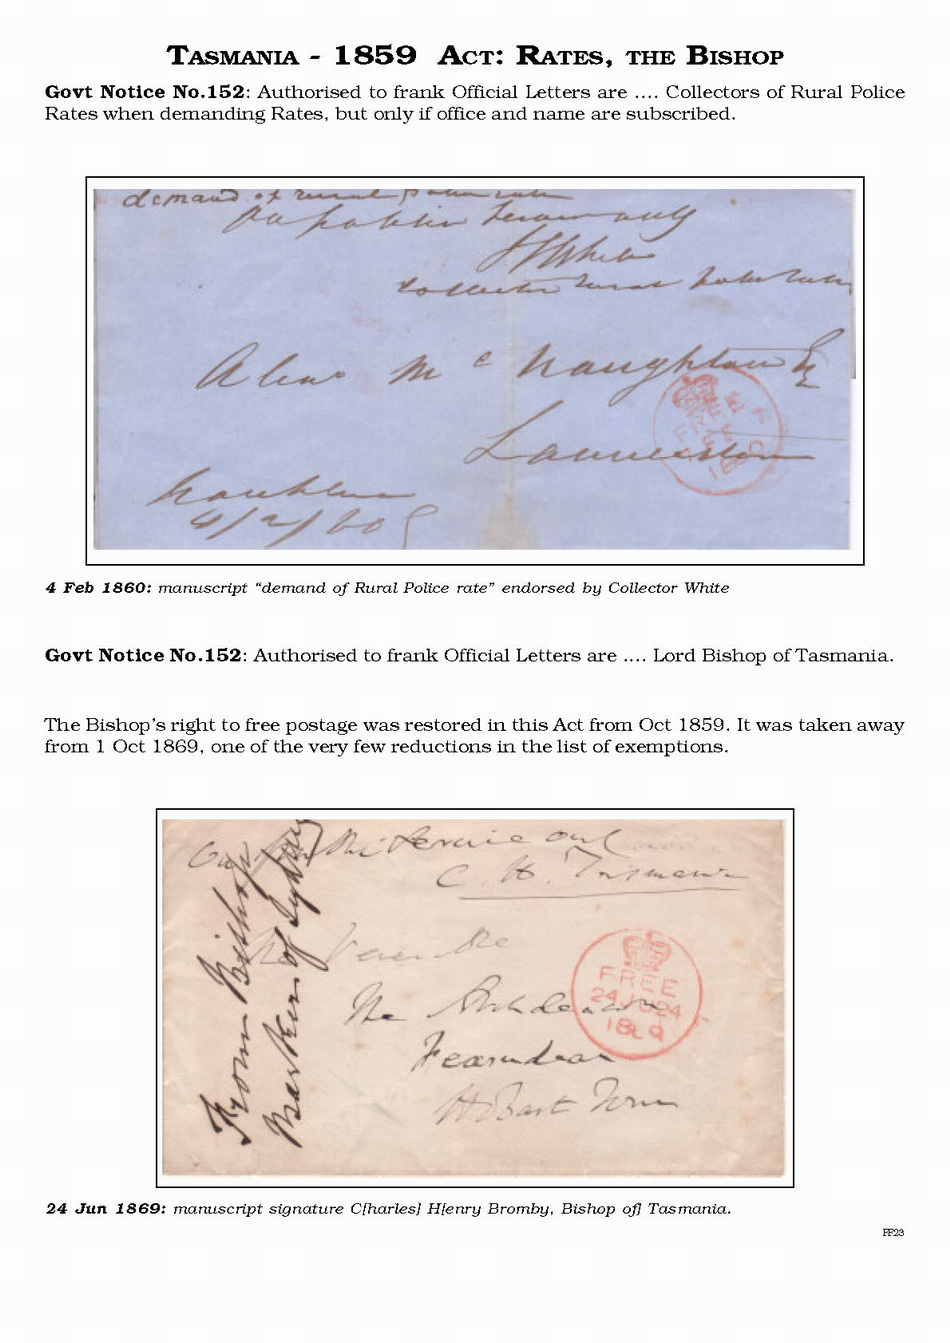 TASMANIA - 1859 ACT: RATES, THE BISHOP
Govt Notice No.152: Authorised to frank Official Letters are .... Collectors of Rural Police
Rates when demanding Rates, but only if office and name are subscribed.
demand of rural police rate
White
collector rural police rates
Mc Naughton Esq
Launceston
FREE
4/2/60
4 Feb 1860: manuscript “demand of Rural Police rate” endorsed by Collector White
Govt Notice No.152: Authorised to frank Official Letters are .... Lord Bishop of Tasmania.
The Bishop’s right to free postage was restored in this Act from Oct 1859. It was taken away
from 1 Oct 1869, one of the very few reductions in the list of exemptions.
Service only
C. H. Tasmania
From Bishop
Barker of Sydney
The Archdeacon
Hobart Town
FREE
24 JU 24
1869
24 Jun 1869: manuscript signature C[harles] H[enry Bromby, Bishop of] Tasmania.
FF23